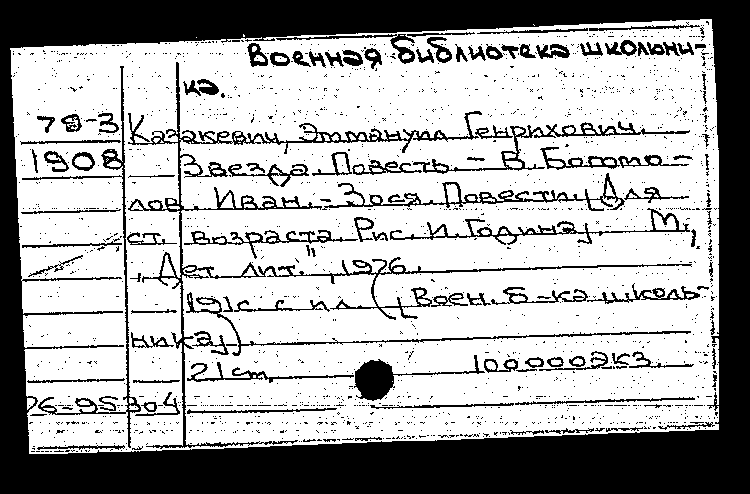 Военная библиотека школьни-
ка.
78-3 Казакевич, Эммануил Генрихович.
1908 Звезда. Повесть. - В. Богомо-
лов. Иван. - Зося. Повести. [Для
ст. возраста. Рис. И. Година]. М.,
"Дет. лит.", 1976.
191с. с ил. ([Воен. б-ка школь-
ника]).
21 cm. 100000экз.
76-95304